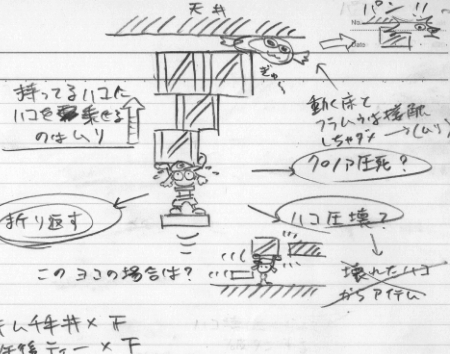 天井
パン!!
No.
Date
ぎゅう
持ってるハコに
ハコを乗せる
のはムリ
動く床と
フラムゥは接触
しちゃダメ
→(ムリ)
クロノア圧死?
折り返す
ハコ圧壊?
このヨコの場合は?
壊れたハコ
からアイテム